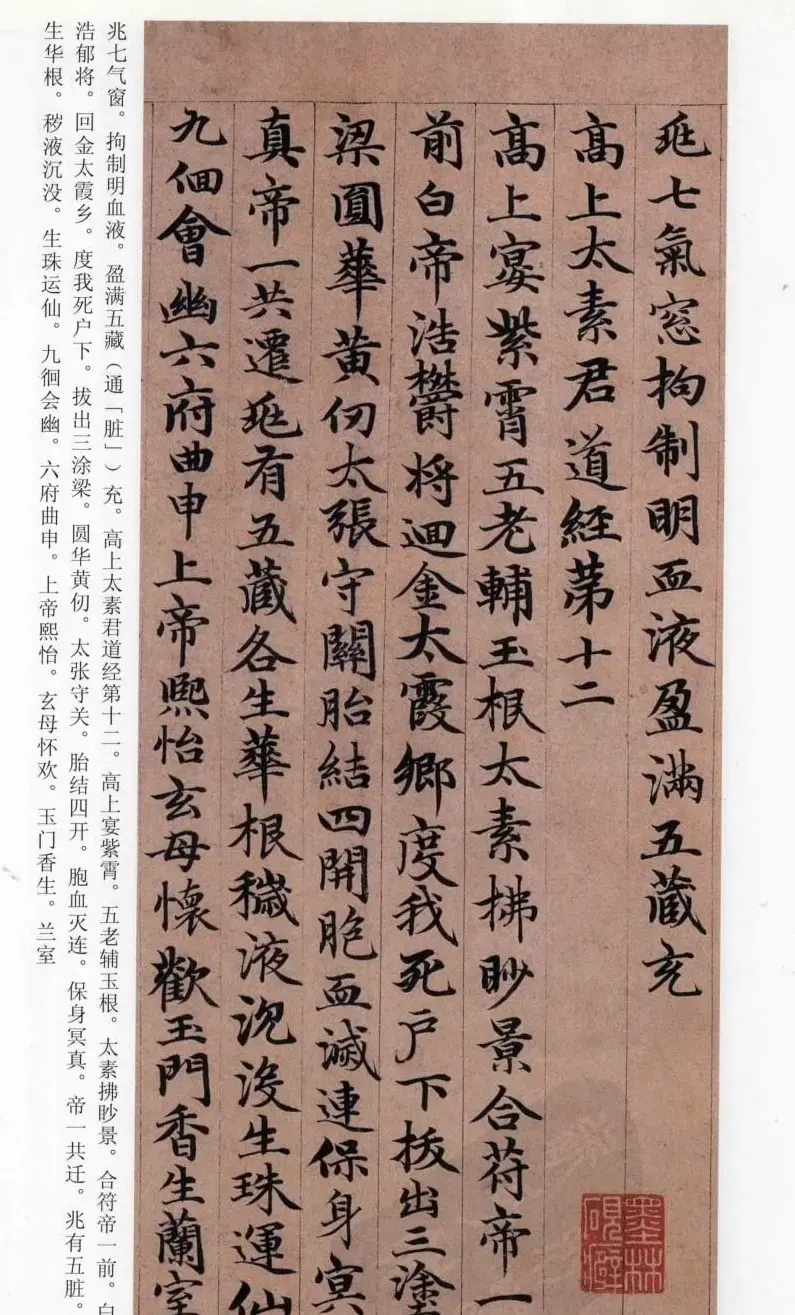 兆七氣窓拘制明血液盈滿五藏充
高上太素君道經苐十二
高上宴紫霄五老輔玉根太素拂眇景合苻帝一
前白帝浩欝將迴金太霞鄉度我死戶下拔出三塗
梁圓華黃仞太張守關胎結四開胞血滅連保身冥
真帝一共遷兆有五藏各生華根穢液沉没生珠運仙
九徊會幽六府曲申上帝熙怡玄母懷歡玉門香生蘭室
墨林
硯癖
兆七气窗。拘制明血液。盈满五藏（通「脏」）充。高上太素君道经第十二。高上宴紫霄。五老辅玉根。太素拂眇景。合符帝一前。白
浩郁将。回金太霞乡。度我死户下。拔出三涂梁。圆华黄仞。太张守关。胎结四开。胞血灭连。保身冥真。帝一共迁。兆有五脏。
生华根。秽液沉没。生珠运仙。九徊会幽。六府曲申。上帝熙怡。玄母怀欢。玉门香生。兰室